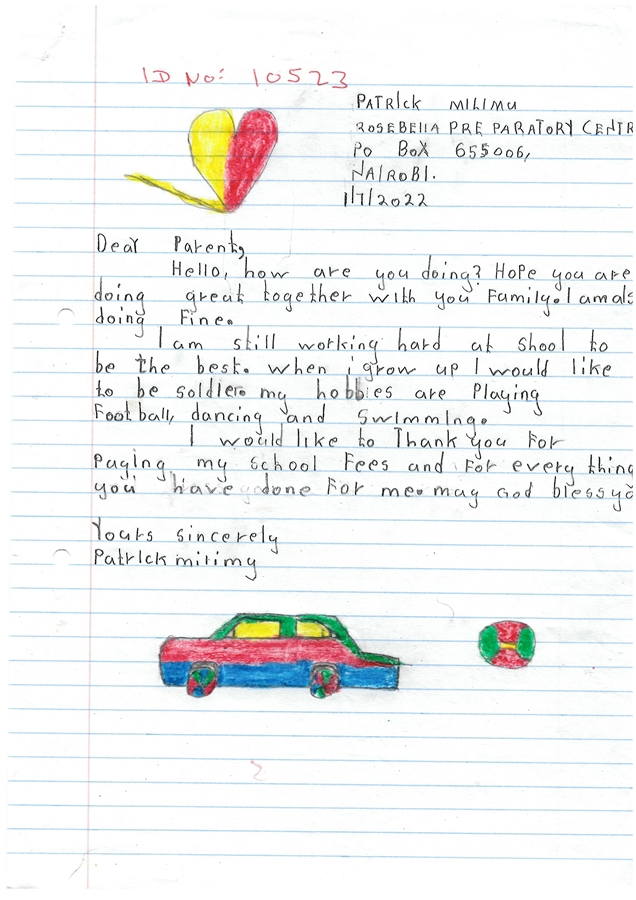 ID No: 10523
PATRICK MILIMU
ROSEBELLA PRE PARATORY CENTR
PO BOX 655006,
NAIROBI.
1/7/2022
Dear Parent,
Hello, how are you doing? Hope you are
doing great together with you Family. I am als
doing Fine.
I am still working hard at shool to
be the best. when i grow up I would like
to be soldier. my hobbies are Playing
Football, dancing and swimming.
I would like to Thank you For
Paying my school Fees and For every thing
you have done For me. may God bless yo
Yours sincerely
Patrick milimy